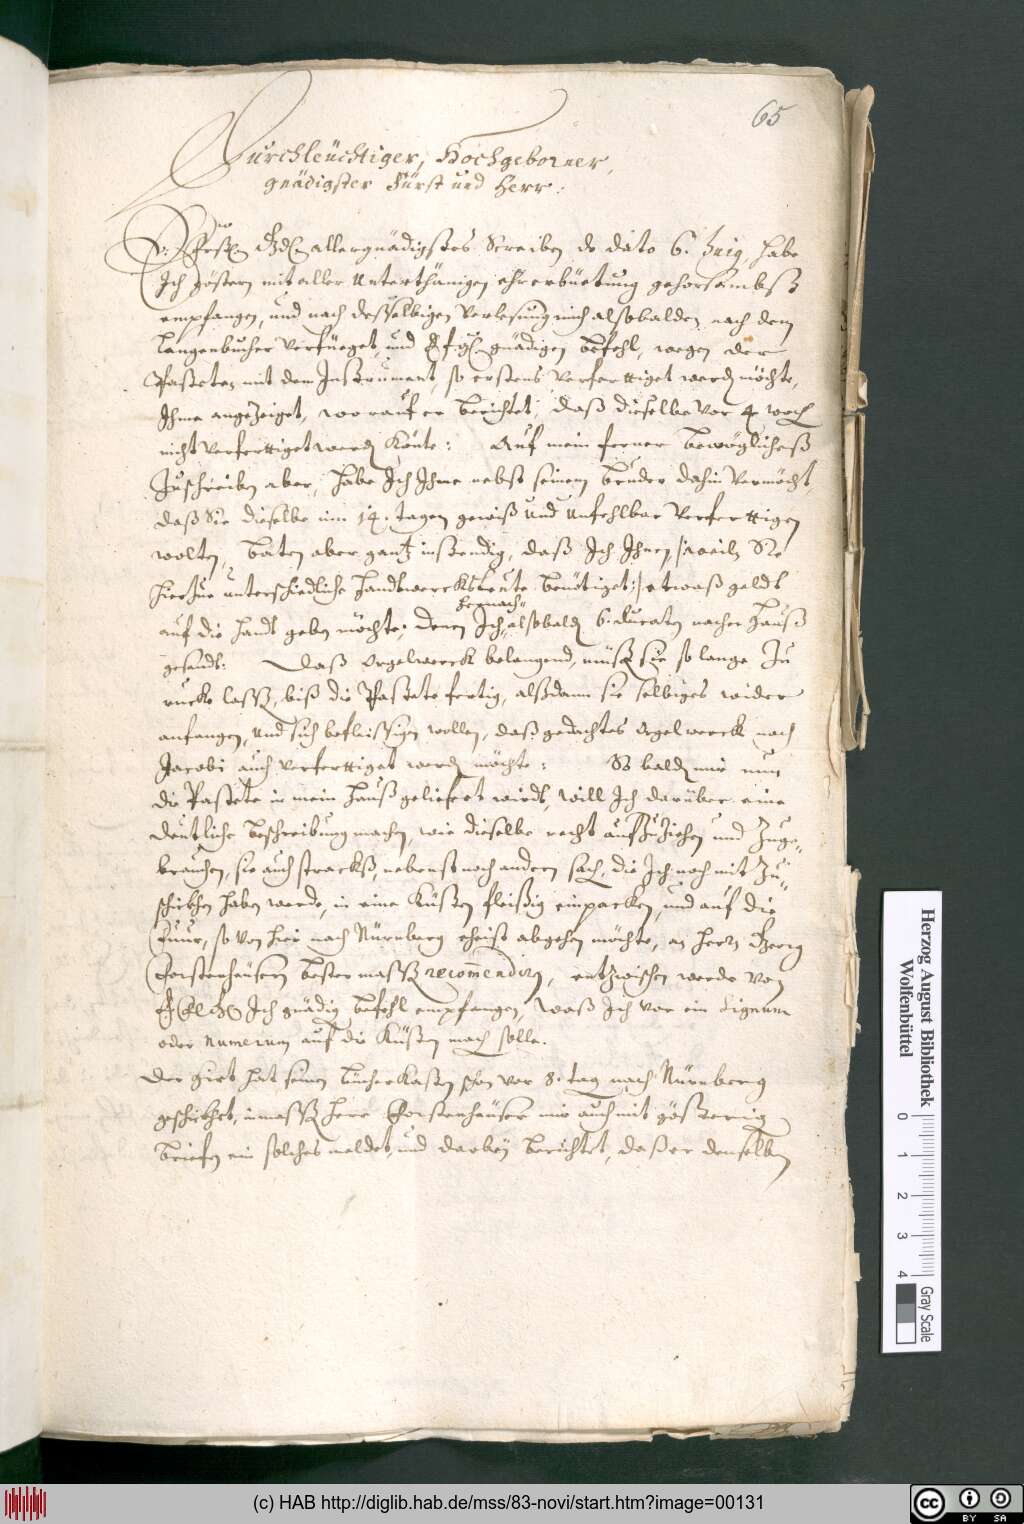 65
Durchleüchtiger, Hochgeborner,
gnädigster Fürst und Herr.
allergnädigstes Screiben de dato 6. huig, habe
Ich göstern mit aller Unterthänigen ehrerbüetung gehorsambst
empfangen, und nach desselbigen Verlesung mich alsobalden nach dem
Langenbucher Verfüeget, und gnädigen befehl, wegen der
Pasteten mit dem Instrument, so erstens Verferttiget werden möchte,
Ihme angezeiget, worauf er berichtet, daß dieselbe vor 4 woch
nicht Verferttiget werden könte: Auf mein ferner bewögliches
Zuschreiben aber, habe Ich Ihme nebst seinem bruder dahin Vermöcht,
daß Sie dieselbe inn 14. tagen gewiß und unfehlbar Verferttigen
wolten, baten aber gantz instendig, daß Ich Ihnen, /:weiln Sie
hierzue unterschiedliche handtwerckhsleute benötiget:/ etwaß geldt
auf die handt geben möchte; denen Ich hernach alsobalden 6. ducaten nacher Hauß
gesandt: Daß Orgelwerck belangend, müsse sie so lange Zu
ruckh lassen, biß die Pasteten fertig, alßdann sie selbiges wider
anfangen, und sich befleissigen wollen, daß gedachtes Orgelwerck nach
Jacobi auch Verferttiget werden möchte: So balden mir nun
die Pasteten in mein Hauß geliefert wirdt, will Ich darüber eine
deutliche beschreibung machen, wie dieselbe recht auffzuZiehen und Zuge-
brauchen, sie auch stracks, nebenst noch andern sach, die Ich noch mit Zu-
schickhen haben werde, in eine Küsten fleißig einpackhen, und auf die
Fuur, so von hier nach Nürnberg eheist abgehen möchte, an herrn Georg
Forstenheusern bester massen recomendirn, entzwischen werde von
Ich gnädig befehl empfangen, waß Ich vor ein Signum
oder Numerum auf die Küsten machen solle.
Der Hirt hat seinen bücher Kasten schon vor 8. tag nach Nürnberg
geschickhet, inmassen herr Forstenheuser mir auch mit göstrig
briefen ein solches meldet, und darbey berichtet, daß er denselben
Herzog August Bibliothek
Wolfenbüttel
0 1 2 3 4
Gray Scale
(c) HAB http://diglib.hab.de/mss/83-novi/start.htm?image=00131
cc BY SA